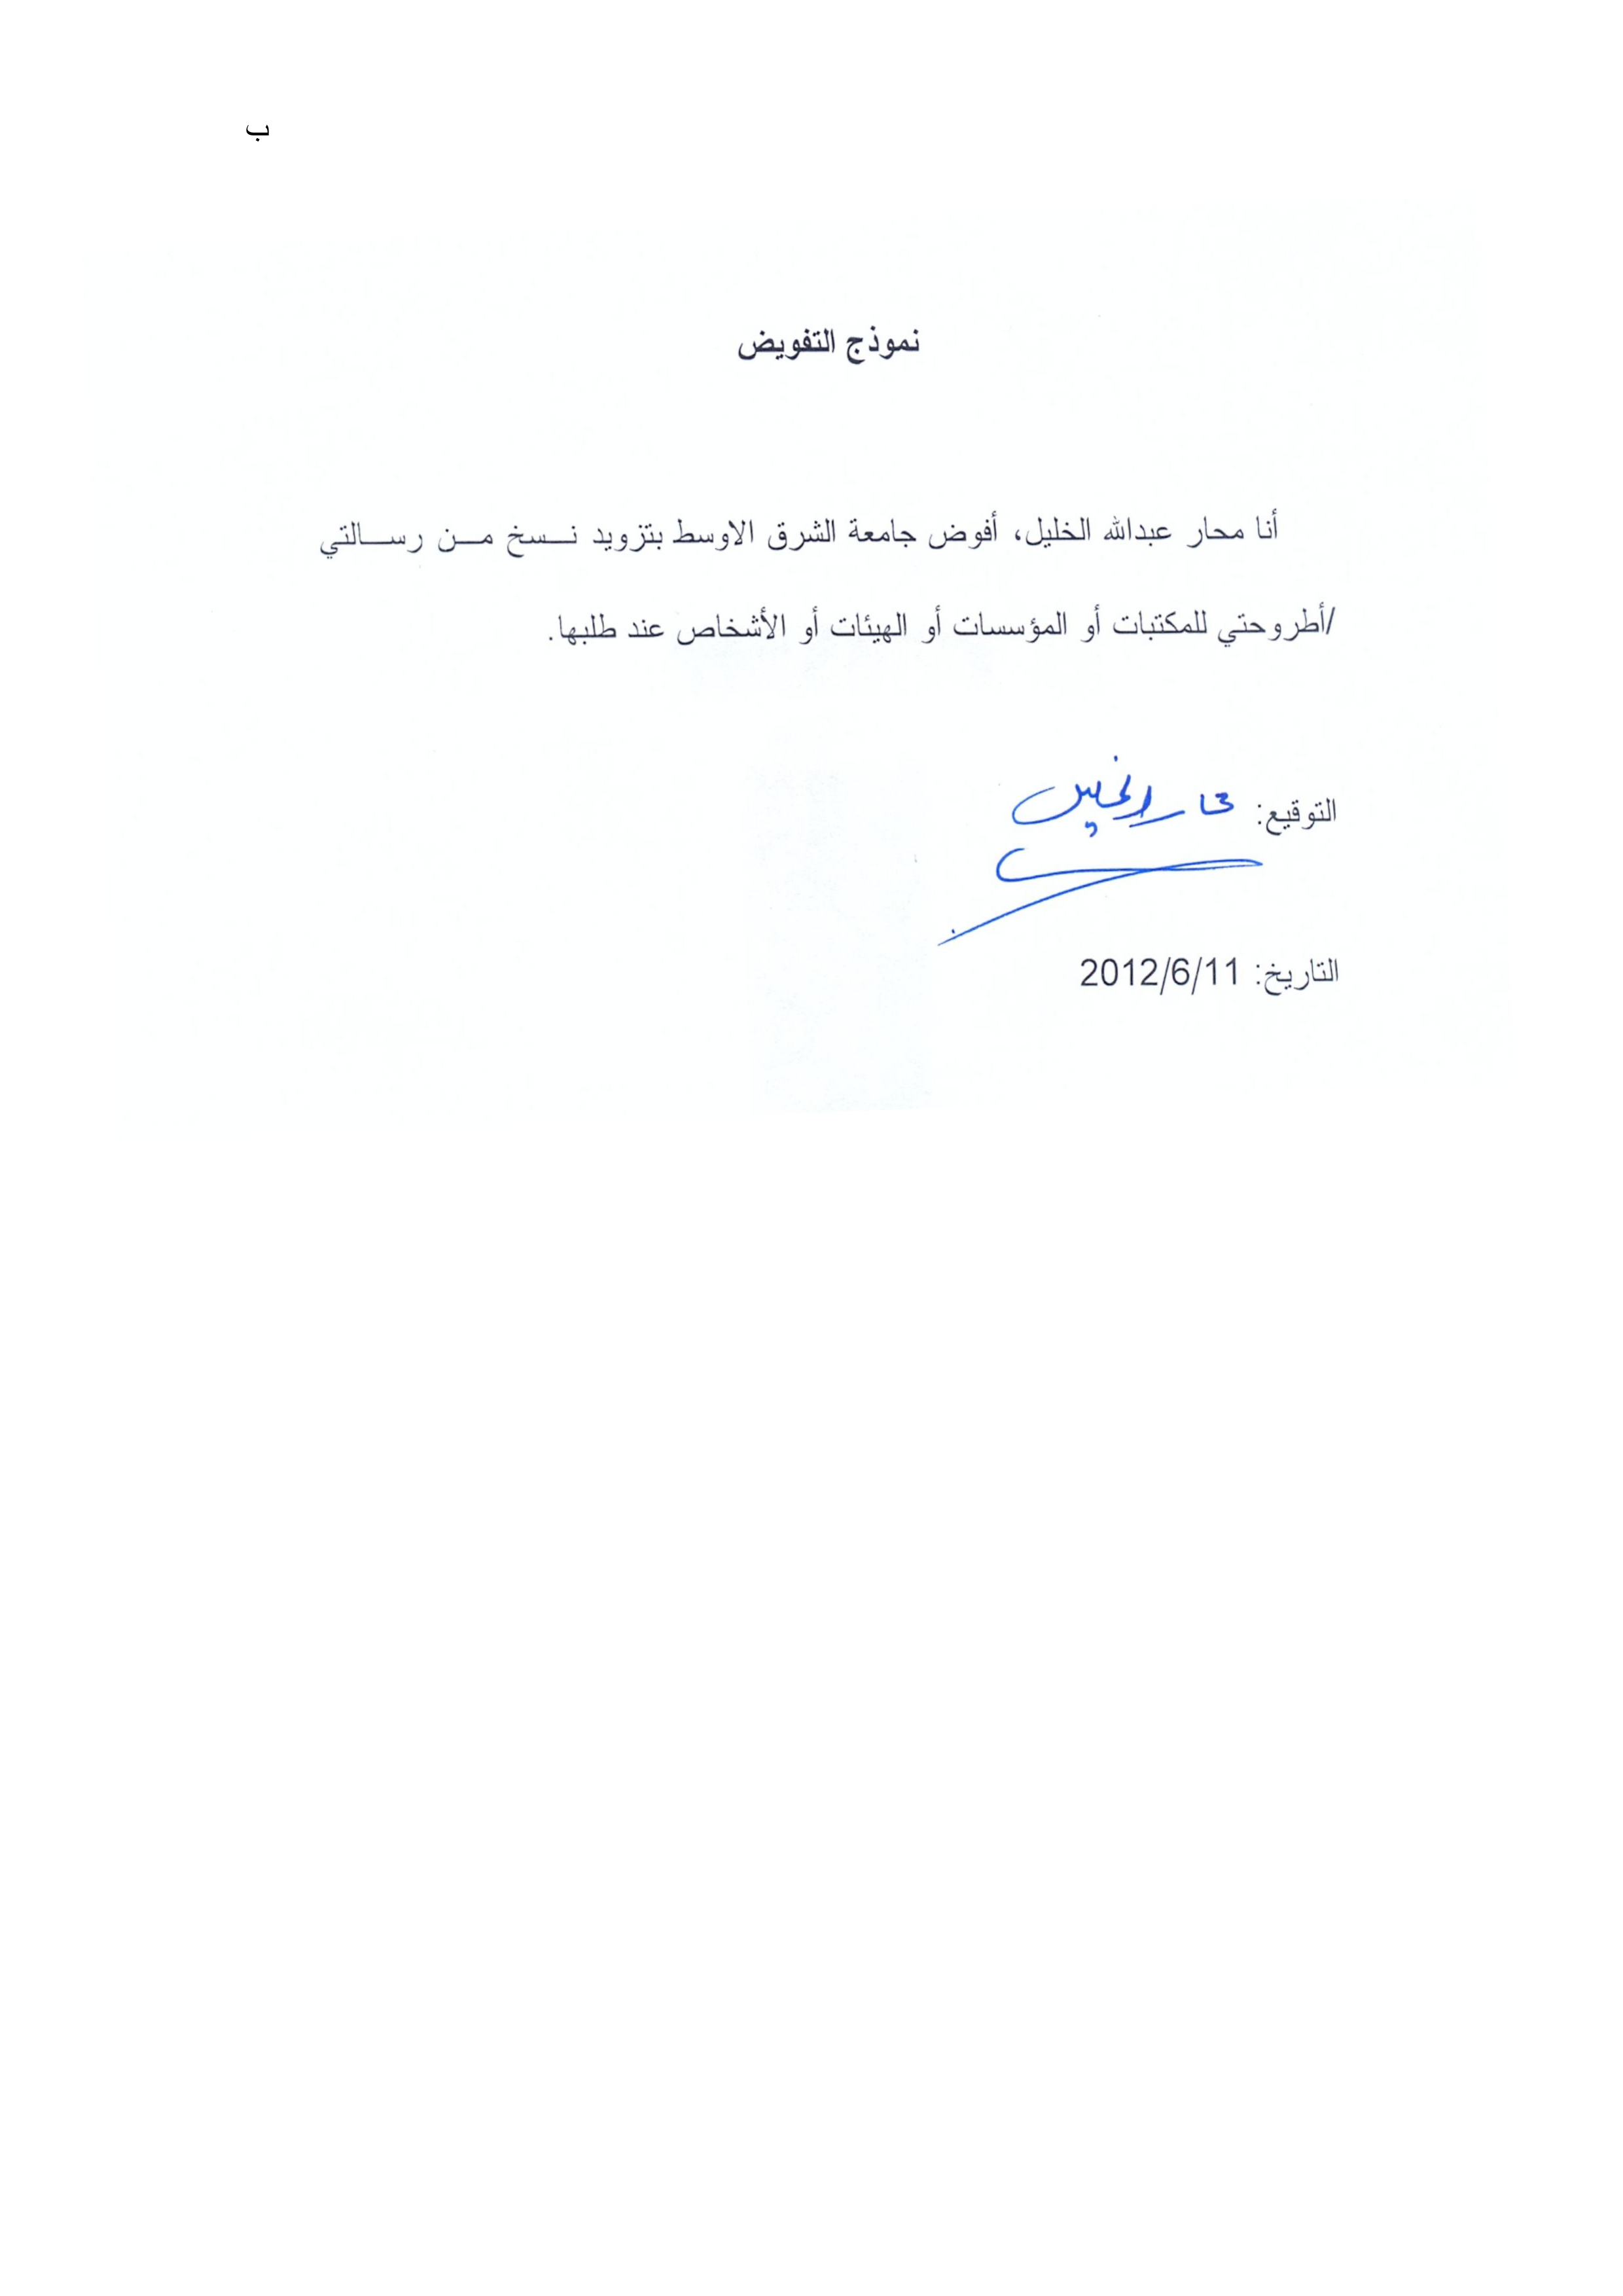 ب
نموذج التفويض
أنا محار عبدالله الخليل، أفوض جامعة الشرق الاوسط بتزويد نسخ من رسالتي
/أطروحتي للمكتبات أو المؤسسات أو الهيئات أو الأشخاص عند طلبها.
التوقيع: محار الخليل
التاريخ: 2012/6/11